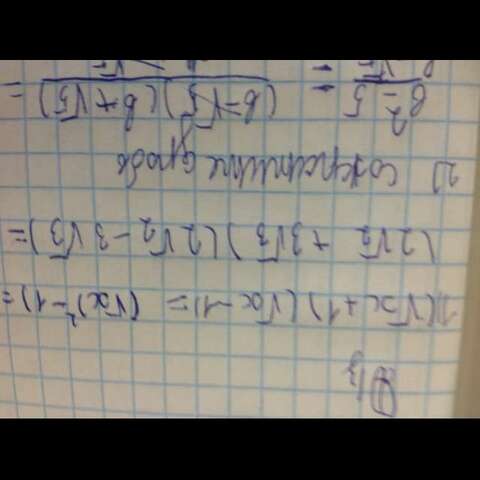 Д/з
1) (√x + 1) (√x - 1) = (√x)² - 1) =
(2√2 + 3√3) (2√2 - 3√3) =
2) сократите дробь
в² - 5 = (в - √5) (в + √5) =